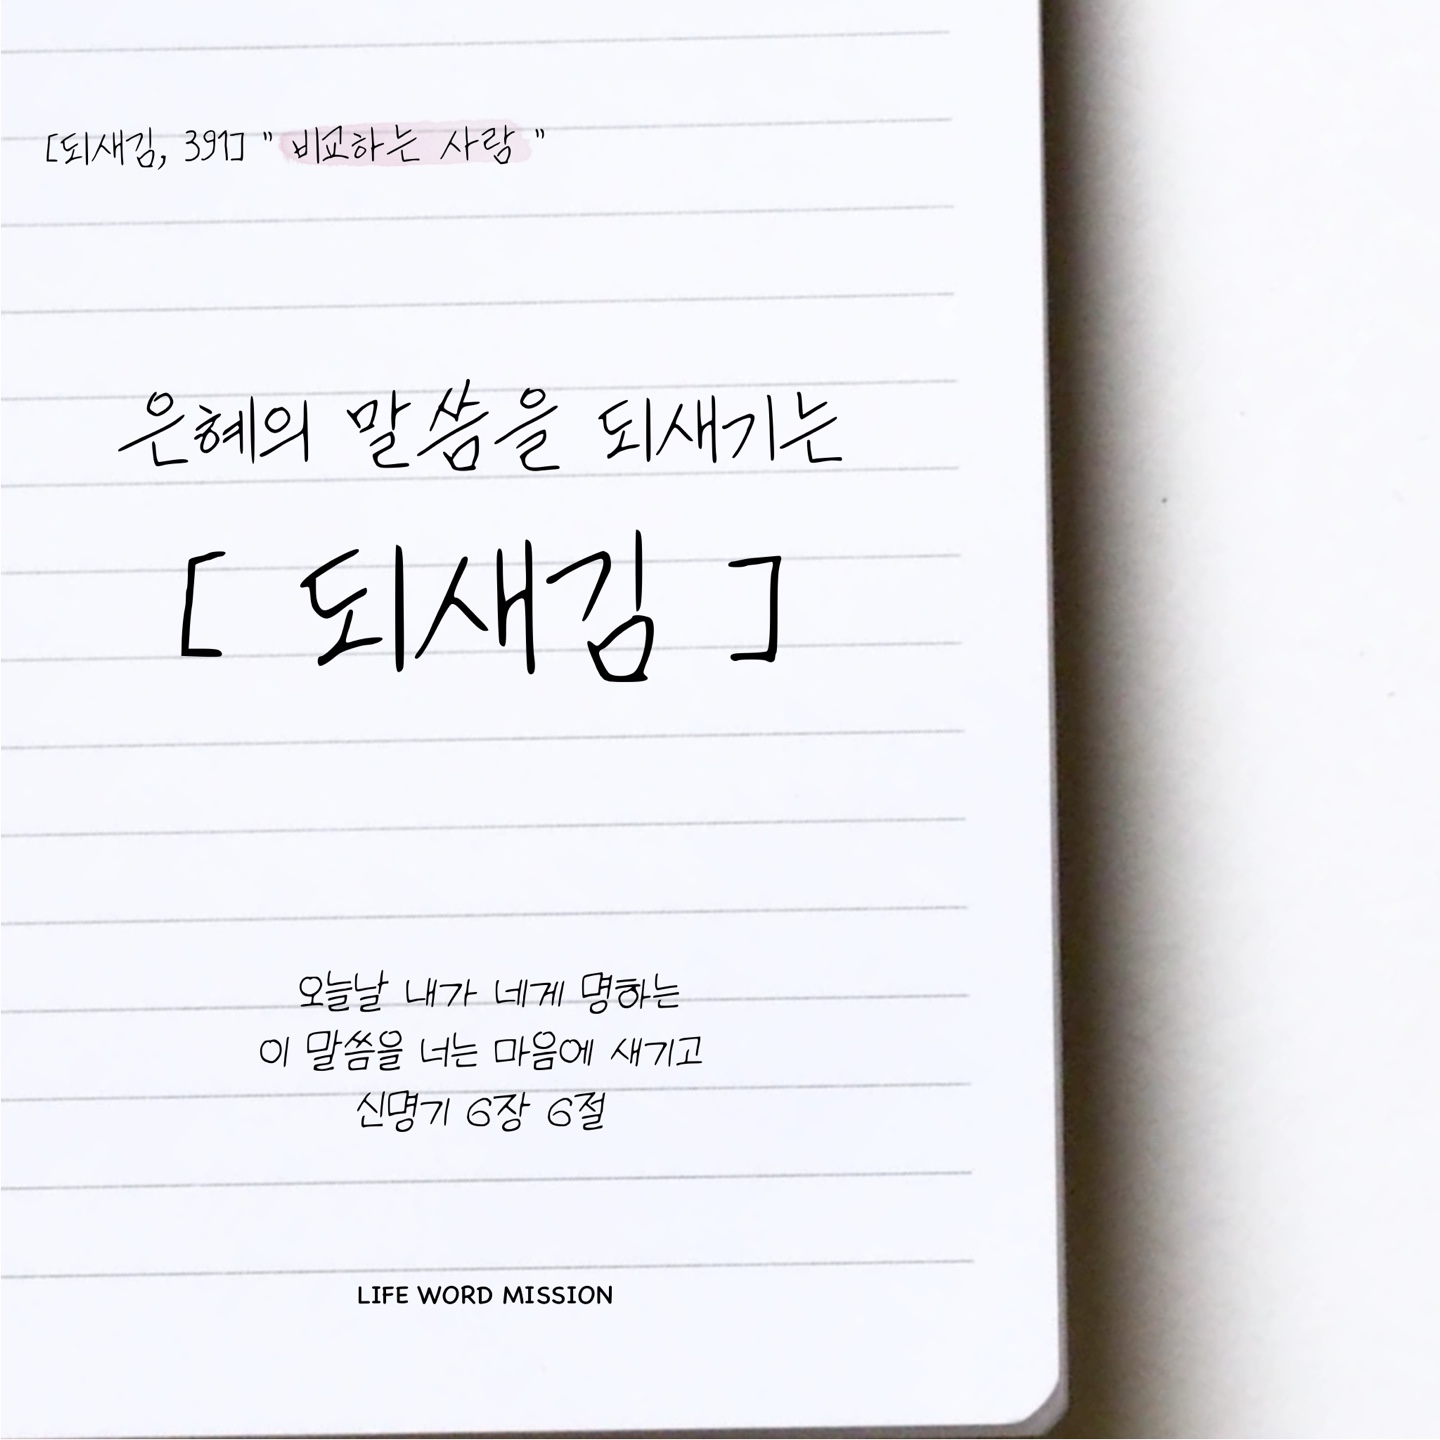 [되새김, 391] " 비교하는 사람 "
은혜의 말씀을 되새기는
[ 되새김 ]
오늘날 내가 네게 명하는
이 말씀을 너는 마음에 새기고
신명기 6장 6절
LIFE WORD MISSION